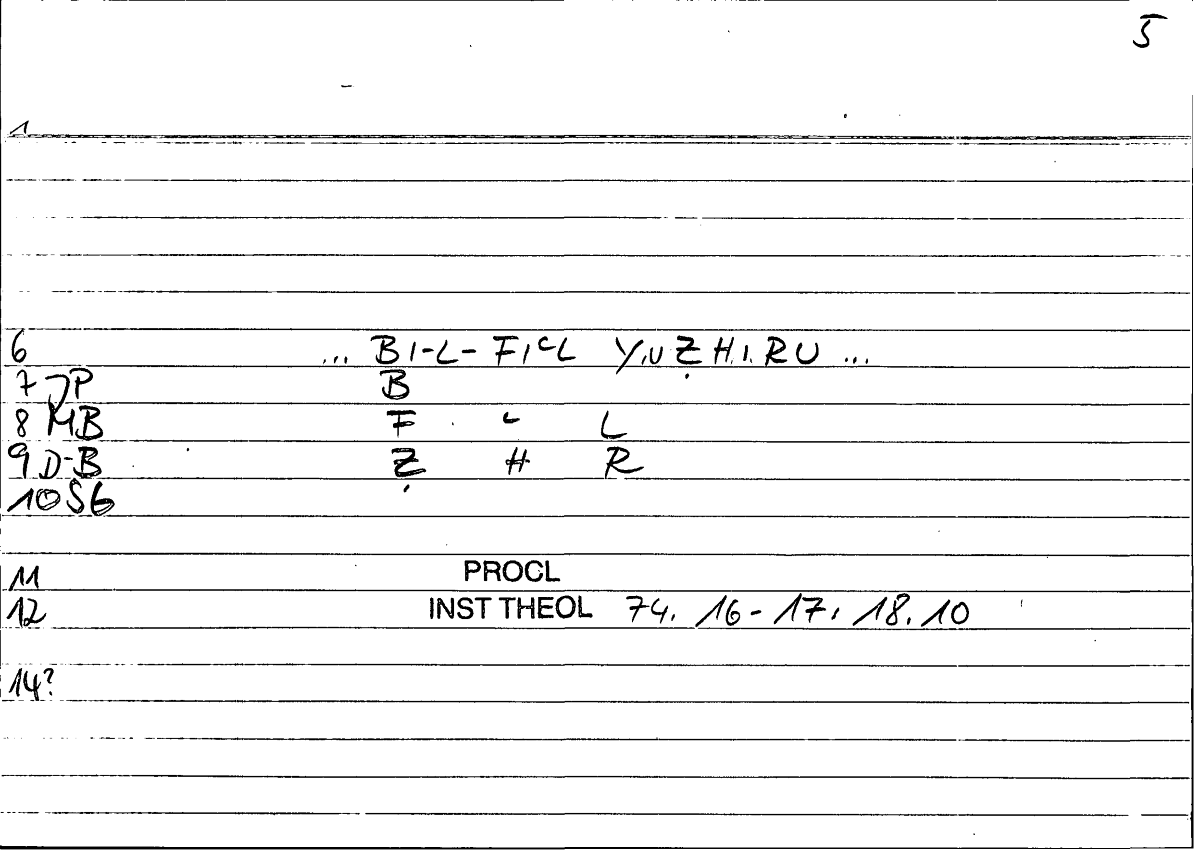 5
1
6 ... BI-L-FIʿL YUẒHIRU ...
7 JP B
8 MB F ʿ L
9 D-B Ẓ H R
10 SG
11 PROCL
12 INST THEOL 74. 16-17, 18.10
14?